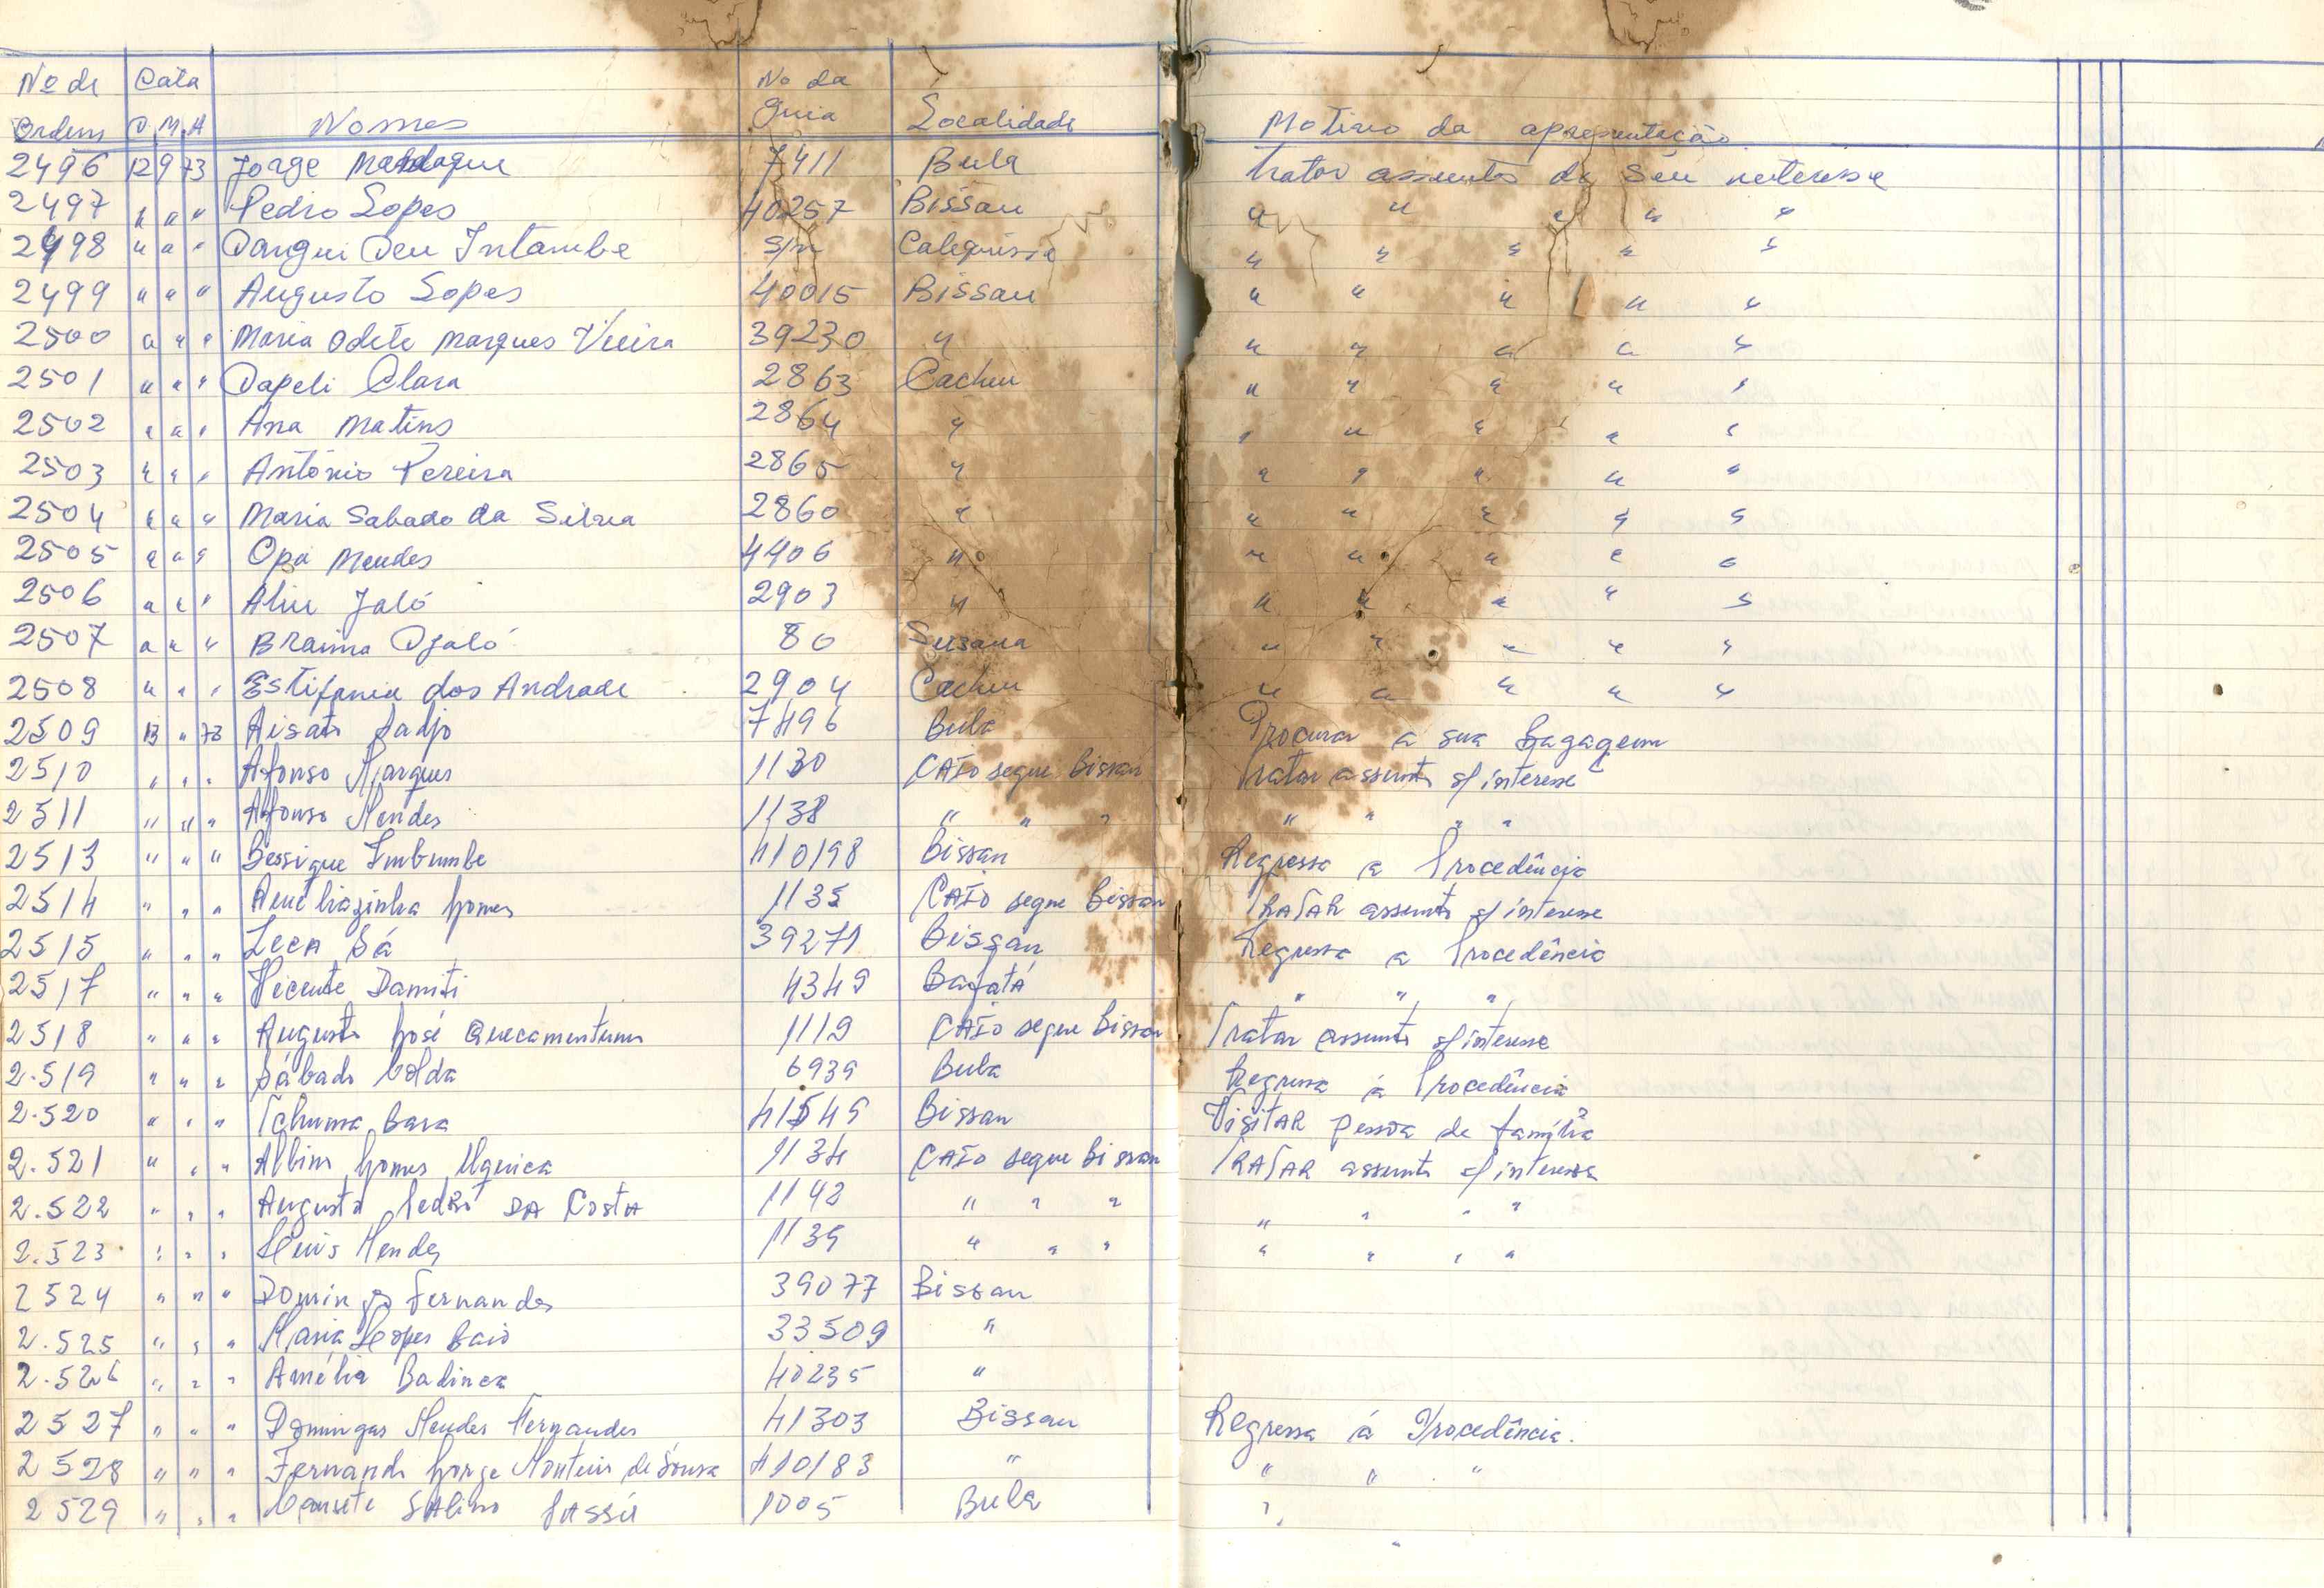 Nº de Data Nº da
Ordem D M A Nomes Guia Localidade Motivo da apresentação
2496 12 9 73 Jorge 7411 Bula Tratar assuntos de Seu interesse
2497 " " " Pedro Lopes 40257 Bissau " " " " "
2498 " " " Dangui Deu Intambe S/n Calequisse " " " " "
2499 " " " Augusto Lopes 40015 Bissau " " " " "
2500 " " " Maria Odete Marques Vieira 39230 " " " " " "
2501 " " " Dapeli Clara 2863 Cacheu " " " " "
2502 " " " Ana Matins 2864 " " " " " "
2503 " " " António Pereira 2865 " " " " " "
2504 " " " Maria Sabado da Silva 2860 " " " " " "
2505 " " " Opa Mendes 4406 " " " " " "
2506 " " " Aliu Jaló 2903 " " " " " "
2507 " " " Braima Djaló 80 Suzana " " " " "
2508 " " " Estifania dos Andrade 2904 Cacheu " " " " "
2509 13 " 73 Aisato Sadjo 7496 Bula Procurar a sua bagagem
2510 " " " Afonso Marques 1130 CAIO segue Bissau Tratar assunto s/ interesse
2511 " " " Afonso Mendes 1138 " " " " " " "
2513 " " " Bessique Imbumbe 410198 Bissau Regressa a Procedência
2514 " " " Ameliazinha Gomes 1135 CAIO segue Bissau TRATAR assunto s/ interesse
2515 " " " Leca Sá 39271 Bissau Regressa a Procedência
2517 " " " Vicente Damiti 4349 Bafatá " " "
2518 " " " Augusto José 1119 CAIO segue Bissau Tratar assunto s/ interesse
2.519 " " " Sábado Colda 6939 Bula Regressa á Procedência
2.520 " " " Tchuma Bara 41549 Bissau VISITAR pessoa de família
2.521 " " " Albino Gomes 1134 CAIO segue Bissau TRATAR assunto s/ interesse
2.522 " " " Augusto Pedro DA Costa 1142 " " " " " " "
2.523 " " " Luis Mendes 1139 " " " " " " "
2524 " " " Domingos Fernandes 39077 Bissau
2.525 " " " Maria Lopes Baio 33509 "
2.526 " " " Amélia Badinca 40235 "
2527 " " " Domingas Mendes Fernandes 41303 Bissau Regressa á Procedência.
2528 " " " Fernando Jorge Monteiro de Sousa 410183 " " " "
2529 " " " SAlino 1005 Bula "